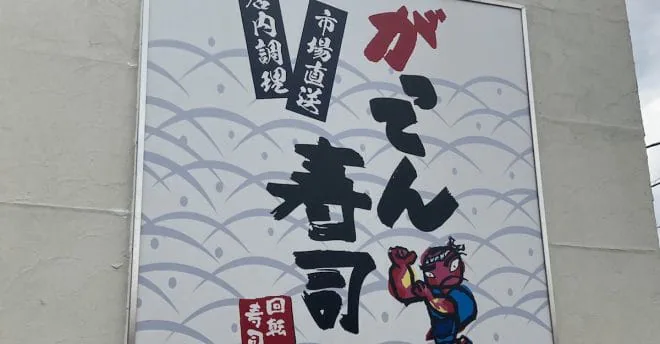 がってん
寿司
市場直送
店内調理
回転
寿司